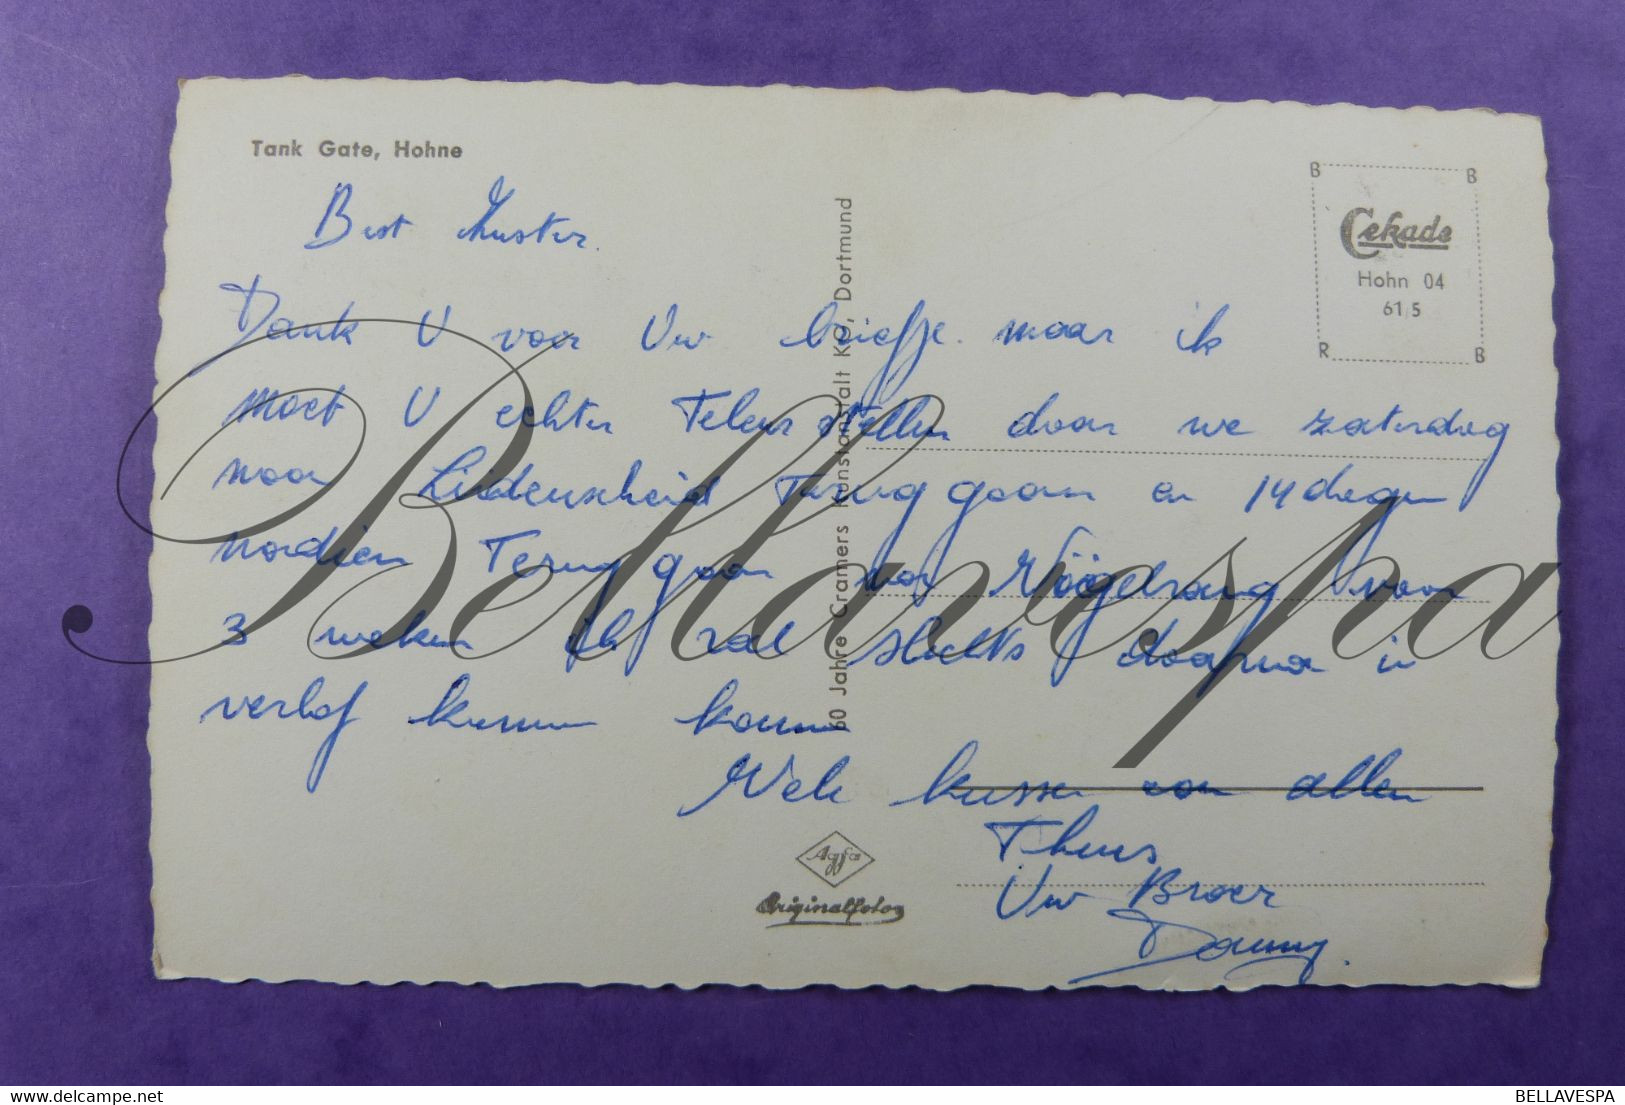 Tank Gate, Hohne
B B
Cekade
Hohn 04
61/5
R B
60 Jahre Cramers Kunstanstalt KG, Dortmund
Best Zuster.
Dank U voor Uw briefje. maar ik
moet U echter Teleurstellen daar we zaterdag
naar Lüdenscheid Terug gaan en 14 dagen
nadien Terug gaan naar Vögelsang voor
3 weken ik zal slechts daarna in
verlof kunnen komen
Vele kussen van allen
Thuis
Uw Broer
Danny.
Agfa
Originalfotos
Bellavespa
BELLAVESPA